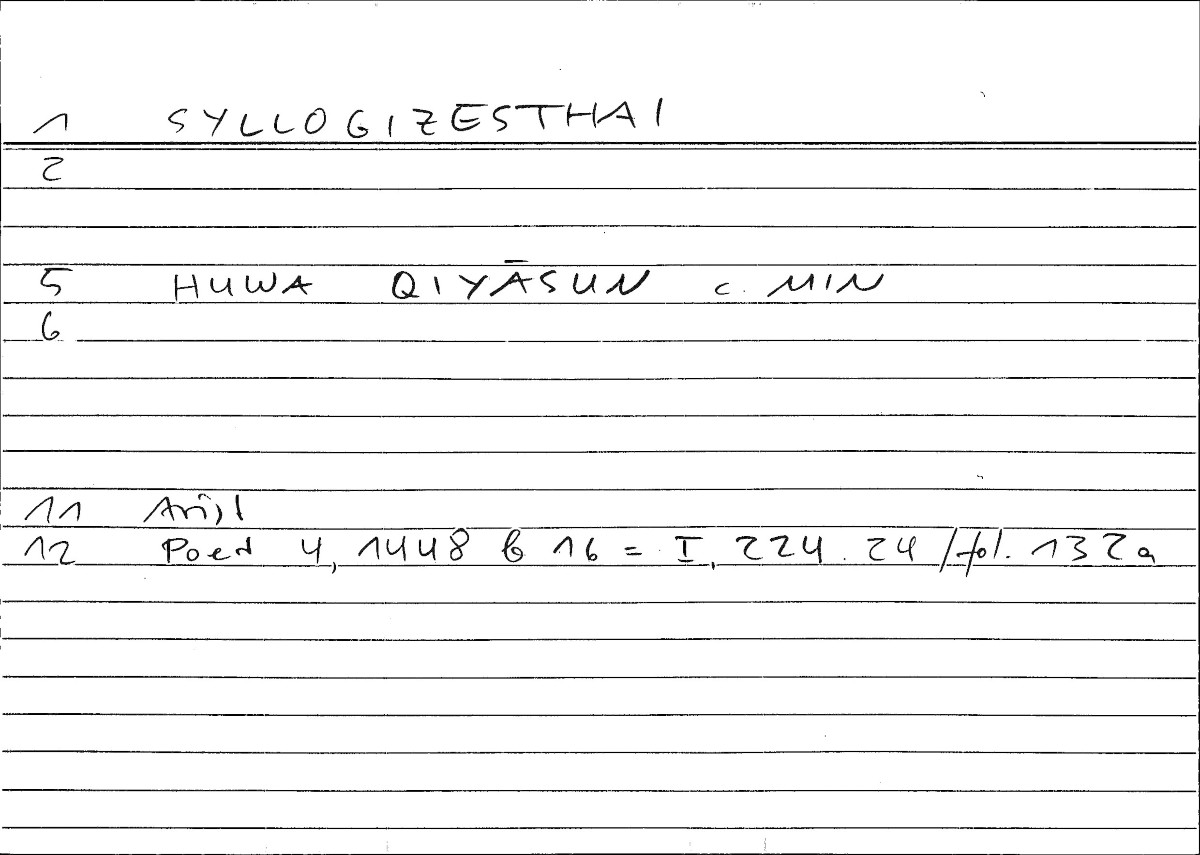 1 SYLLOGIZESTHAI
2
5 HUWA QIYĀSUN c. MIN
6
11 Arist
12 Poet 4, 1448 b 16 = I, 224.24 / fol. 132a